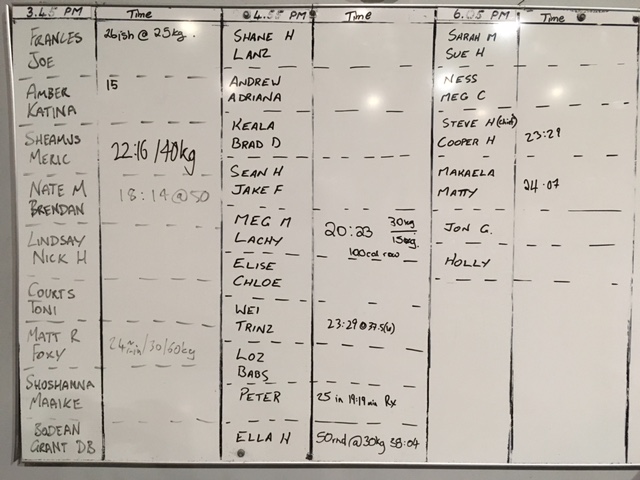 3.45 PM Time
FRANCES 26ish @ 25kg.
JOE
AMBER 15
KATINA
SHEAMUS
MERIC 22:16 /40kg
NATE M 18:14@50
BRENDAN
LINDSAY
NICK H
COURTS
TONI
MATT R 24 min/30/60kg
FOXY
SHOSHANNA
MAAIKE
BODEAN
GRANT DB
4.55 PM Time
SHANE H
LANZ
ANDREW
ADRIANA
KEALA
BRAD D
SEAN H
JAKE F
MEG M 20:23 30kg
LACHY 15kg.
100cal row
ELISE
CHLOE
WEI
TRINZ 23:29@37.5(u)
LOZ
BABS
PETER 25 in 19:19 min Rx
ELLA H 50rnd@30kg 38:04
6.05 PM Time
SARAH M
SUE H
NESS
MEG C
STEVE H (chief)
COOPER H 23:29
MAKAELA
MATTY 24.07
JON G.
HOLLY